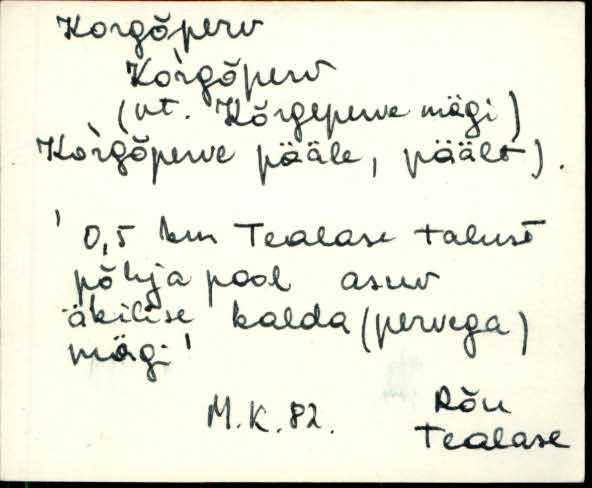 Korgõperv
Ko`rgõperv
(vt. Kõrgeperve mägi)
Ko`rgõperve pääle, päält).
' 0,5 km Tealase talust
põhja pool asuv
äkilise kalda (pervega)
mägi'
M.K. 82.
Rõu
Tealase